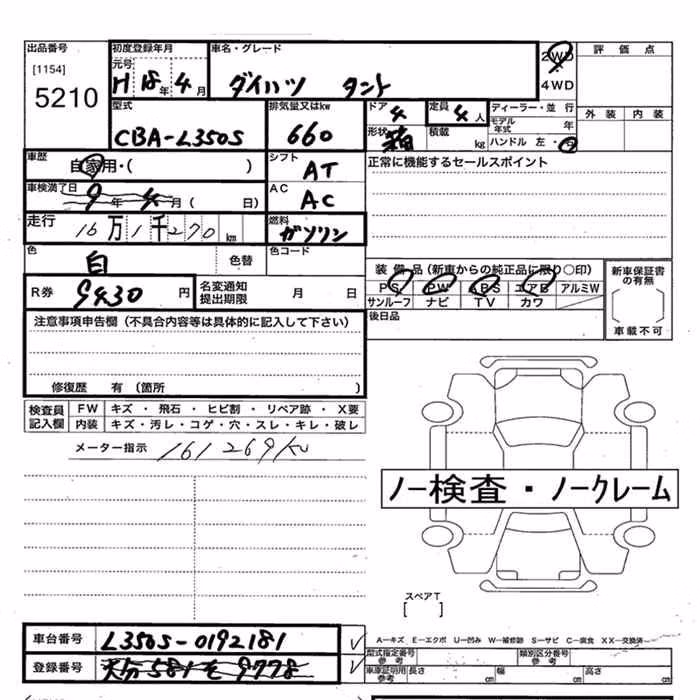 出品番号 初度登録年月 車名・グレード 2WD 評価点
[1154] 元号
5210 H 18年 4月 ダイハツ タント 4WD
型式 排気量又はkw ドア 4 定員 4人 ディーラー・並行 外装 内装
CBA-L350S 660 形状 箱 積載 kg モデル年式 年
ハンドル 左・右
車歴 自家用・( ) シフト AT 正常に機能するセールスポイント
車検満了日 9年 4月( 日) AC AC
走行 16万1千270km 燃料 ガソリン
色 白 色替 色コード
装備品(新車からの純正品に限り○印) 新車保証書の有無
R券 9430円 名変通知提出期限 月 日
PS PW ABS エアB アルミW
サンルーフ ナビ TV カワ
[ ]
車載不可
注意事項申告欄(不具合内容等は具体的に記入して下さい) 後日品
修復歴 有(箇所 )
検査員記入欄 FW キズ・飛石・ヒビ割・リペア跡・X要
内装 キズ・汚レ・コゲ・穴・スレ・キレ・破レ
メーター指示 161269Km
ノー検査・ノークレーム
スペアT
[ ]
車台番号 L350S-0192181
登録番号 大分 581 を 9778
A-キズ E-エクボ U-凹み W-補修跡 S-サビ C-腐食 XX-交換済
型式指定番号 参考 類別区分番号 参考
車庫証明用 参考 長さ cm 幅 cm 高さ cm